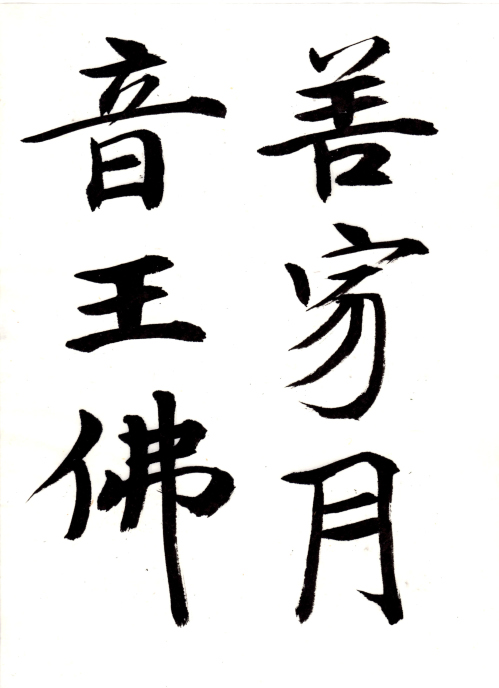 善月
音王佛